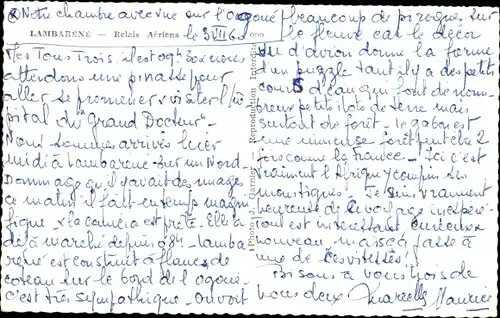 Notre chambre avec vue sur l'Ogooué
LAMBARÉNÉ — Relais Aériens
le 3 VIII 6
Mes Tous Trois. il est 9h30 x nous
attendons une pinasse pour
aller se promener x visiter l'hô
pital du "Grand Docteur" -
Nous sommes arrivés hier
midi à Lambaréné sur un Nord -
Dommage qu'il y avait des nuages
ce matin il fait un temps magni
fique x la caméra est prête. Elle a
déjà marché depuis 8h - Lamba-
réné est construit à flancs de
coteau sur le bord de l'ogoué -
c'est très sympathique. On voit
beaucoup de pirogues sur
le fleuve car le décor
vu d'avion donne la forme
d'un puzzle tant il y a des petits
cours d'eau qui font de nom-
breux petits îlots de terre mais
surtout de forêt - le gabon est
une immense forêt peut être 2
fois comme la France - Ici c'est
vraiment l'Afrique y compris les
moustiques! Je suis vraiment
heureuse de ce voyage inespéré
Tout est intéressant curieux x
nouveau mais ça passe à
une de ces vitesses!
Bisous à vous trois de
nous deux Marcelle Maurice
Photo J. Garnier
Reproduction Interdite